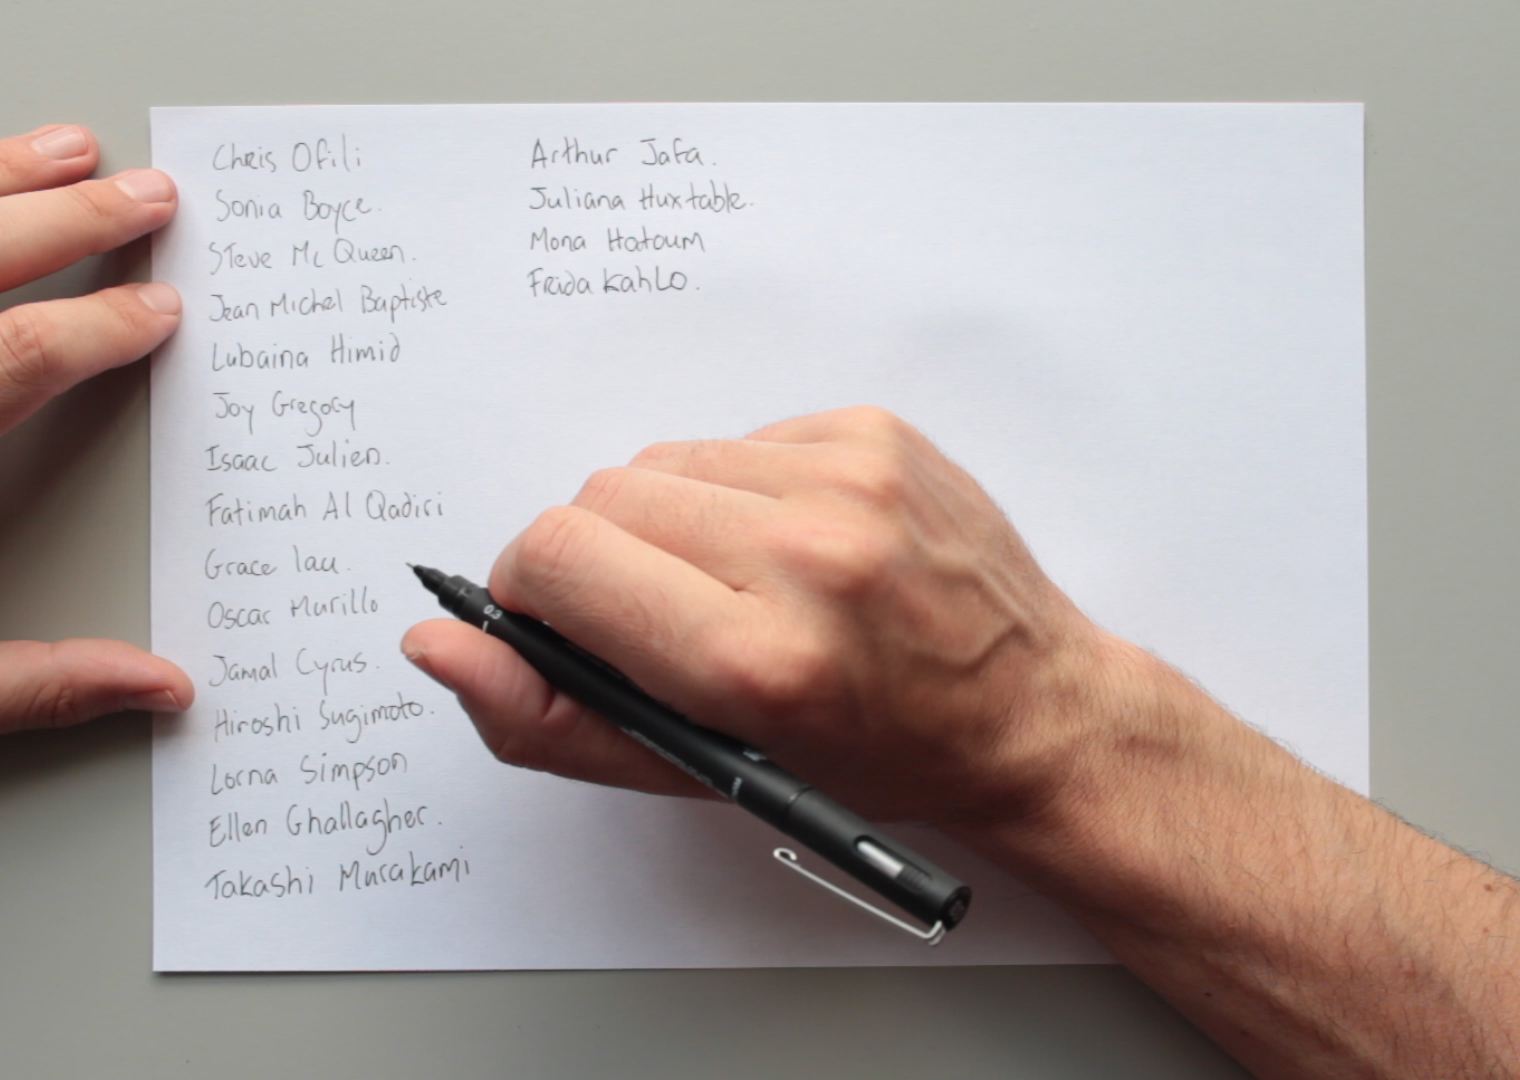 Chris Ofili
Sonia Boyce.
Steve Mc Queen.
Jean Michel Baptiste
Lubaina Himid
Joy Gregory
Isaac Julien.
Fatimah Al Qadiri
Grace lau.
Oscar Murillo
Jamal Cyrus.
Hiroshi Sugimoto.
Lorna Simpson
Ellen Ghallagher.
Takashi Murakami
Arthur Jafa.
Juliana Huxtable.
Mona Hatoum
Frida Kahlo.
0.3